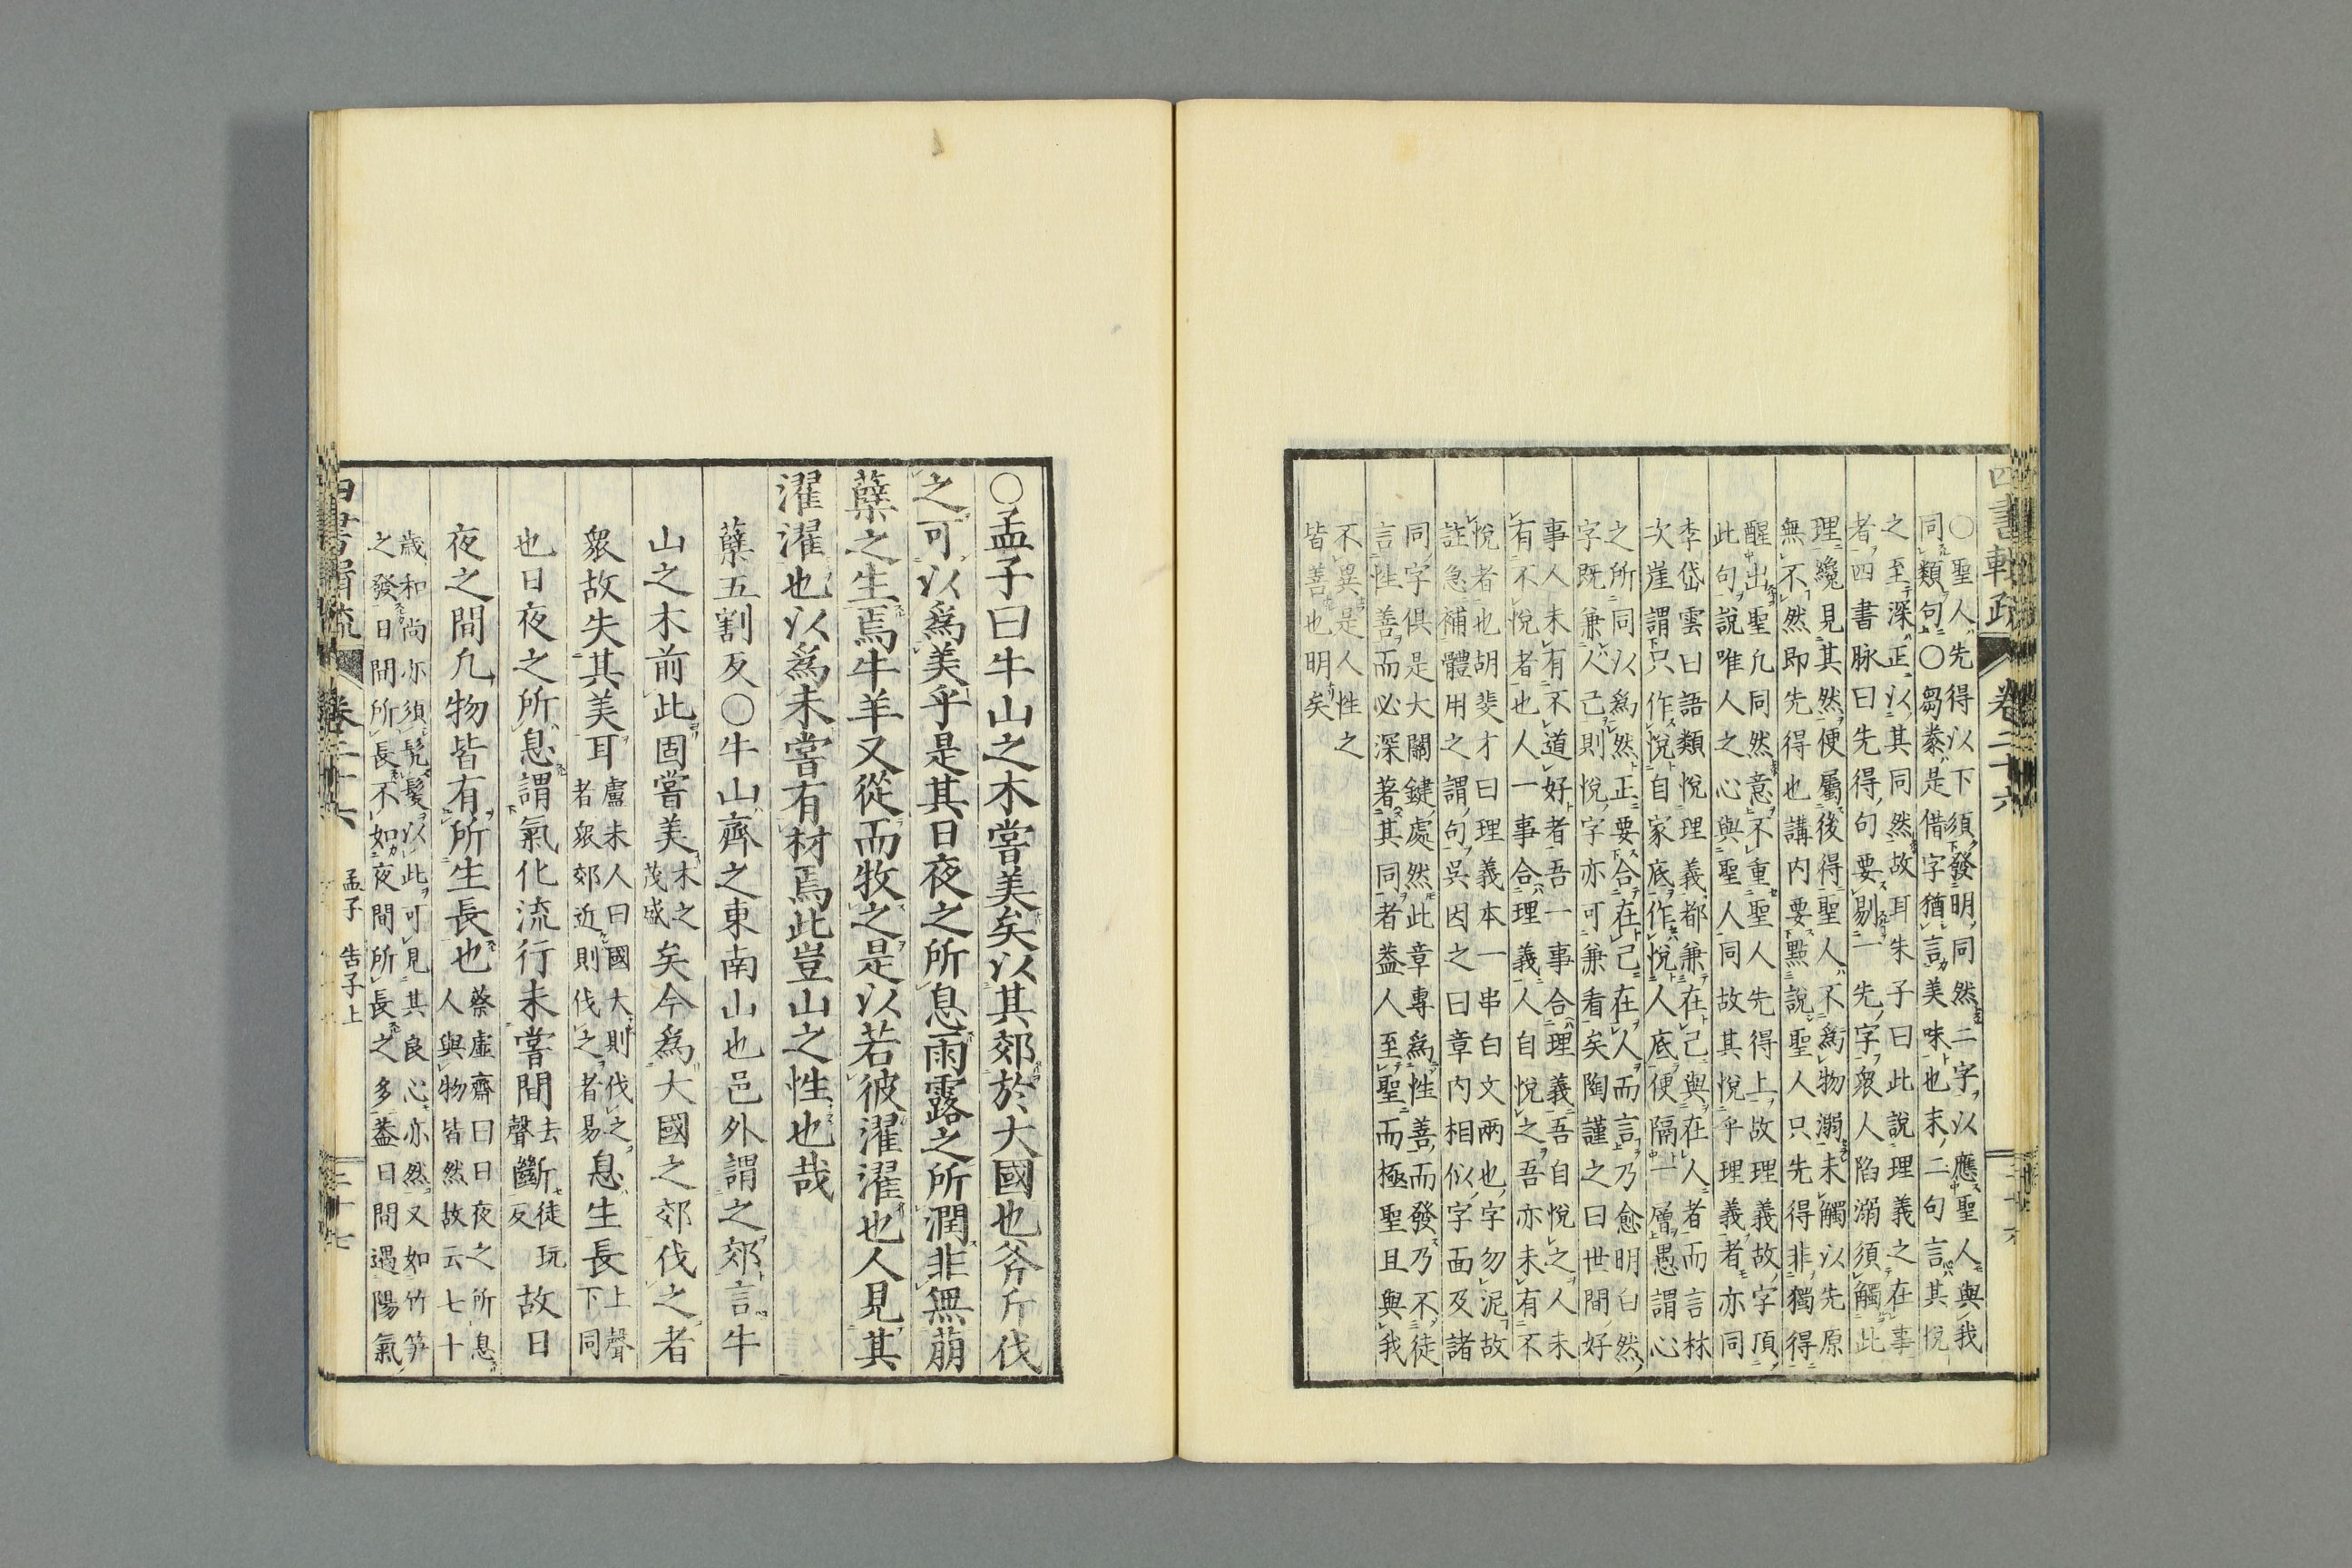 四書輯疏 卷二十六
○聖人先得以下須發明同然二字以應聖人與我
同類句○芻豢是借字猶言美味也末二句言其悅
之至深正以其同然故耳朱子曰此說理義之在事
者四書脉曰先得句要剔一先字衆人陷溺須觸此
理纔見其然便屬後得聖人不爲物溺未觸以先原
無不然即先得也講內要點說聖人只先得非獨得
醒出聖凡同然意不重聖人先得上故理義故字頂
此句說唯人之心與聖人同故其悅乎理義者亦同
李岱雲曰語類悅理義都兼在己與在人者而言林
次崖謂只作悅自家底作悅人底便隔一層愚謂心
之所同以爲然正要合在己在人而言乃愈明白然
字既兼人己則悅字亦可兼看矣陶謹之曰世間好
事人未有不道好者吾一事合理義吾自悅之人未
有不悅者也人一事合理義人自悅之吾亦未有不
悅者也胡斐才曰理義本一串白文兩也字勿泥故
註急補體用之謂句吳因之曰章內相似字面及諸
同字俱是大關鍵處然此章專爲性善而發乃不徒
言性善而必深著其同者葢人至聖而極聖且與我
不異是人性之
皆善也明矣
○孟子曰牛山之木嘗美矣以其郊於大國也斧斤伐
之可以爲美乎是其日夜之所息雨露之所潤非無萠
蘖之生焉牛羊又從而牧之是以若彼濯濯也人見其
濯濯也以爲未嘗有材焉此豈山之性也哉
蘖五割反○牛山齊之東南山也邑外謂之郊言牛
山之木前此固嘗美木之
茂盛矣今爲大國之郊伐之者
衆故失其美耳盧未人曰國大則伐之
者衆郊近則伐之者易息生長上聲
下同
也日夜之所息謂氣化流行未嘗間去
聲斷徒玩
反故日
夜之間凡物皆有所生長也蔡虛齋曰日夜之所息
人與物皆然故云七十
歲和尚亦須髡髮以此可見其良心亦然又如竹笋
之發日間所長不如夜間所長之多葢日間遇陽氣
四書輯疏 卷二十六 孟子 告子上 二十七